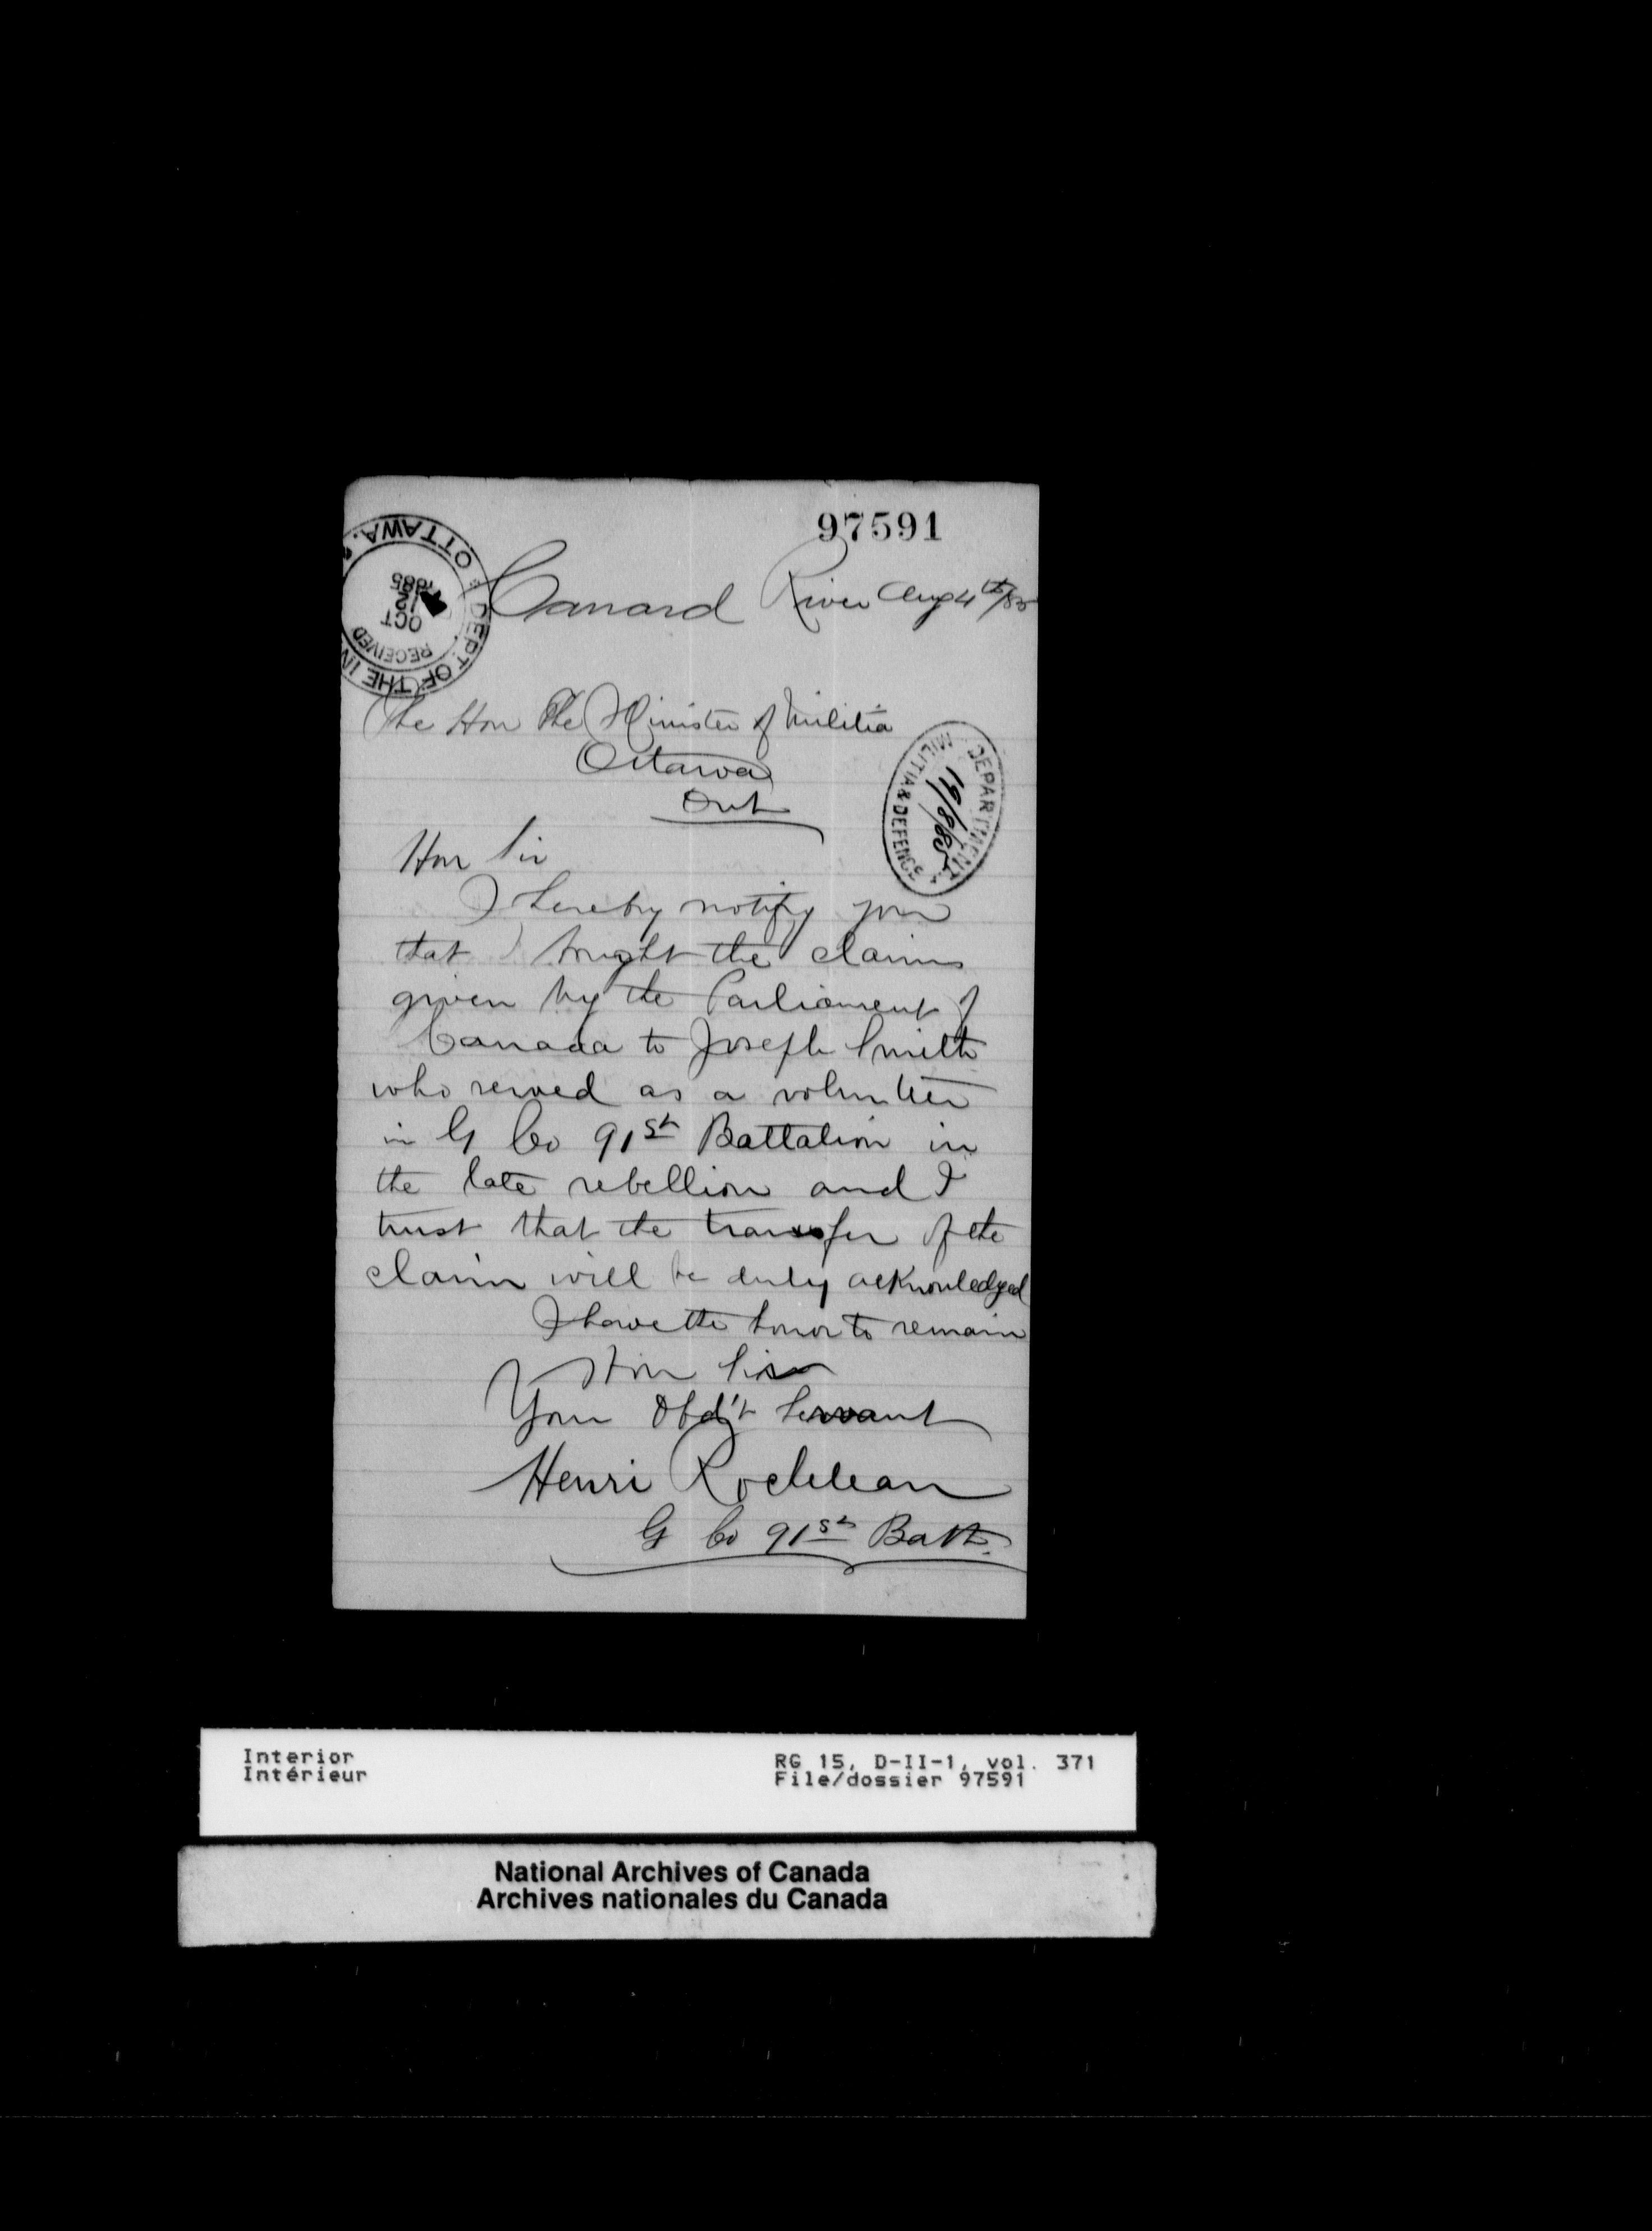 97591
OTTAWA.
DEPT OF THE IN
RECEIVED
OCT
12
1885
Canard River Aug 4th/85
The Hon The Minister of Militia
Ottawa
Ont
DEPARTMENT
19/8/85
MILITIA & DEFENCE
Hon Sir
I hereby notify you
that I bought the claims
given by the Parliament of
Canada to Joseph Smith
who served as a volunteer
in G Co 91st Battalion in
the late rebellion and I
trust that the transfer of the
claim will be duly acknowledged
I have the honor to remain
Hon Sir
Your Obd't Servant
Henri Rocheleau
G Co 91st Batt.
Interior
Intérieur
RG 15, D-II-1, vol. 371
File/dossier 97591
National Archives of Canada
Archives nationales du Canada